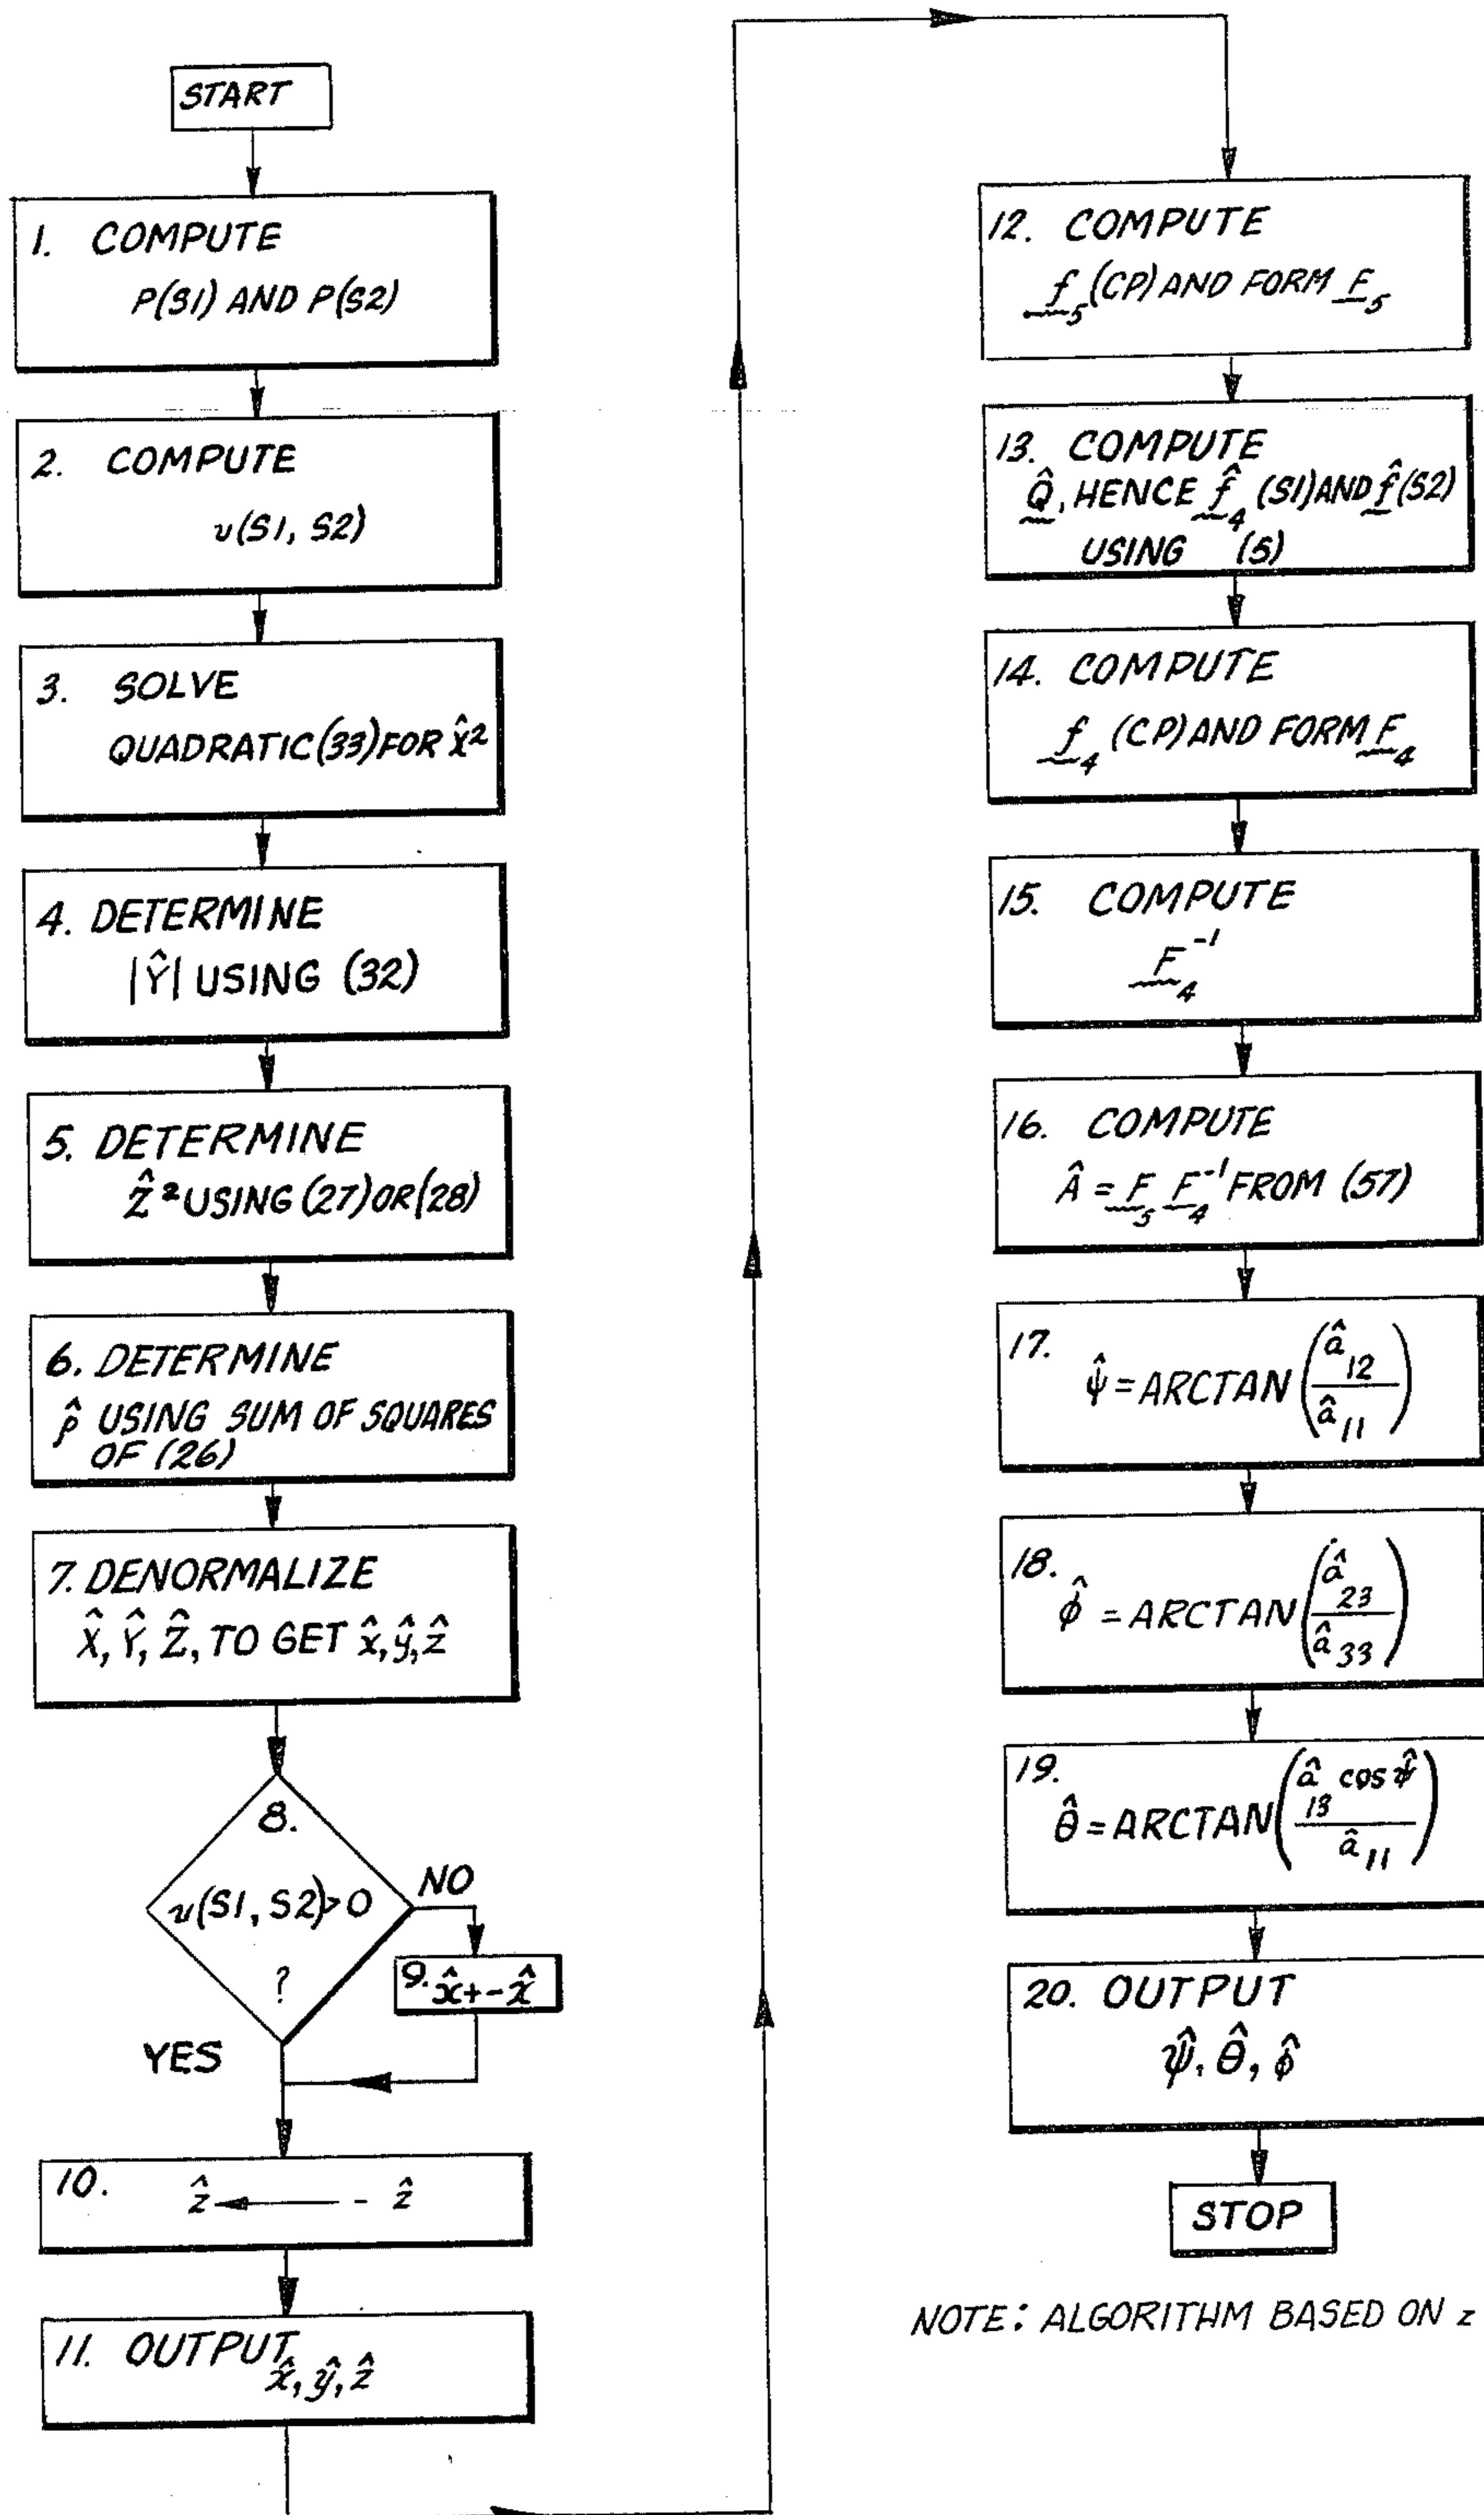 START
1. COMPUTE
P(S1) AND P(S2)
2. COMPUTE
v(S1, S2)
3. SOLVE
QUADRATIC (33) FOR X̂²
4. DETERMINE
|Ŷ| USING (32)
5. DETERMINE
Ẑ² USING (27) OR (28)
6. DETERMINE
ρ̂ USING SUM OF SQUARES
OF (26)
7. DENORMALIZE
X̂, Ŷ, Ẑ, TO GET x̂, ŷ, ẑ
8.
v(S1, S2)>0
?
NO
9. x̂←-x̂
YES
10. ẑ ← - ẑ
11. OUTPUT
x̂, ŷ, ẑ
12. COMPUTE
f₅(CP) AND FORM F₅
13. COMPUTE
Q̂, HENCE f̂₄ (S1) AND f̂(S2)
USING (5)
14. COMPUTE
f₄ (CP) AND FORM F₄
15. COMPUTE
F₄⁻¹
16. COMPUTE
Â = F₅ F₄⁻¹ FROM (57)
17. ψ̂ = ARCTAN (â₁₂ / â₁₁)
18. φ̂ = ARCTAN (â₂₃ / â₃₃)
19. θ̂ = ARCTAN (â₁₃ cos ψ̂ / â₁₁)
20. OUTPUT
ψ̂, θ̂, φ̂
STOP
NOTE: ALGORITHM BASED ON z